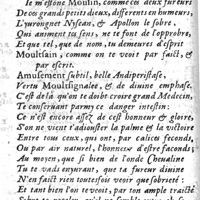 Ie m'estõne Moulin, commẽt ces deux fureurs
De ces grãds petits dieux, differẽts en humeurs,
L'yurongnet Nysean, & Apollon le sobre,
Qui animent tes sens, ne te font de l'opprobre,
Et que tel, que de nom, tu demeures d'esprit
Moultsain, comme on te voit par faict, &
par escrit.
Amusement subtil, belle Andiperistase,
Vertu Moultsignalee, & de divine emphase.
C'est de là qu'on te doibt croire grand Medecin,
Te conservant parmy ce danger intestin:
Ce n'est encore assez de cest honneur & gloire,
S'on ne vient t'adiouster la palme & la victoire
Entre tous ceux, qui ont, par calices feconds,
Ou par air naturel, l'honneur d'estre faconds;
Au moyen, que si bien de l'onde Chevaline
Tu te vas enyurant, que ta fureur divine
N'en faict rien toutesfois veoir que sobrieté:
Et tant bien l'on te voit, par ton ample traicté